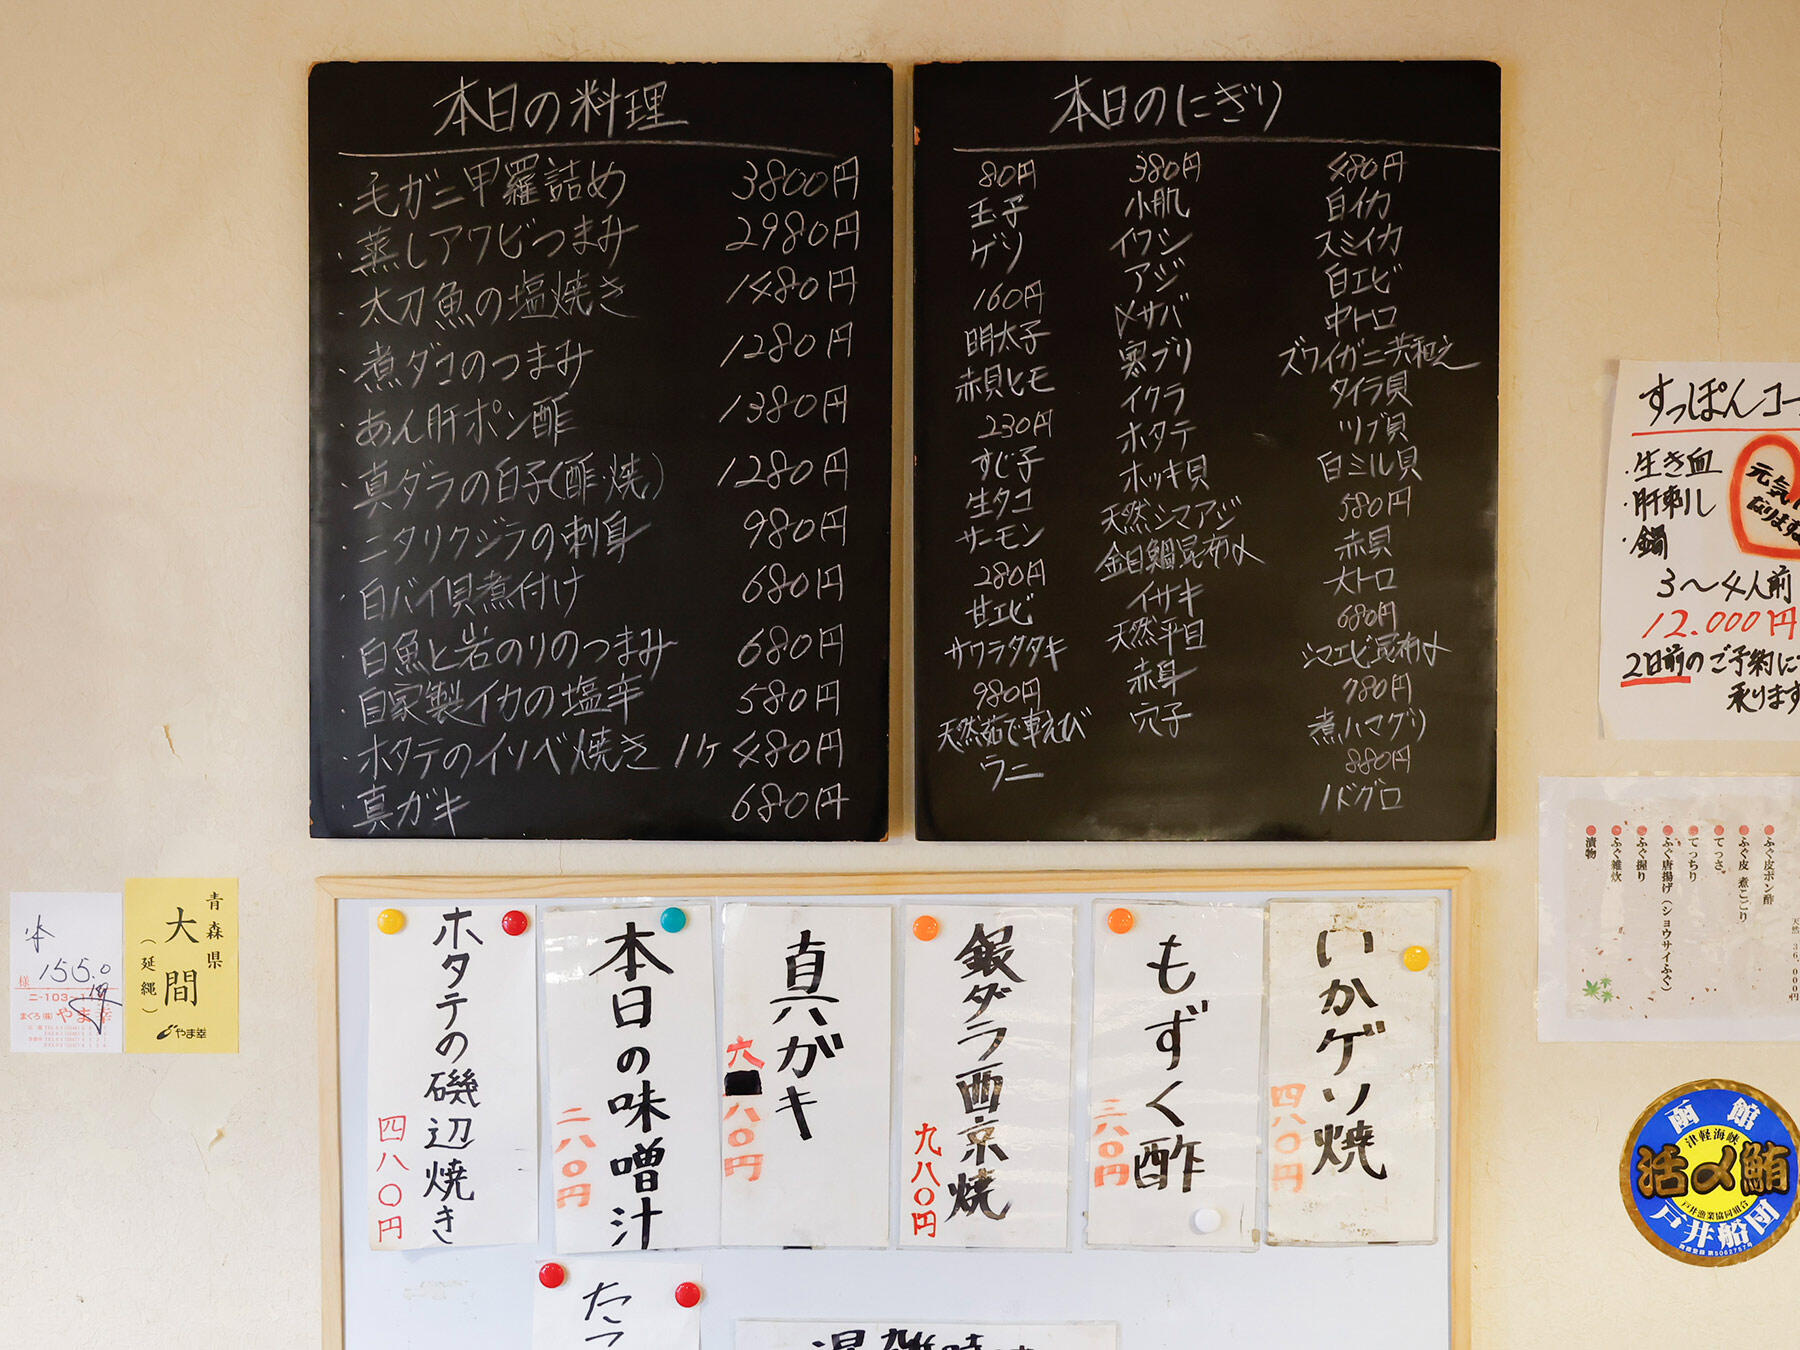 本日の料理
・毛ガニ甲羅詰め 3800円
・蒸しアワビつまみ 2980円
・太刀魚の塩焼き 1480円
・煮ダコのつまみ 1280円
・あん肝ポン酢 1380円
・真ダラの白子(酢・焼) 1280円
・ニタリクジラの刺身 980円
・白バイ貝煮付け 680円
・白魚と岩のりのつまみ 680円
・自家製イカの塩辛 580円
・ホタテのイソベ焼き 1ヶ 480円
・真ガキ 680円
本日のにぎり
80円
玉子
ゲソ
160円
明太子
赤貝ヒモ
230円
すじ子
生タコ
サーモン
280円
甘エビ
サワラタタキ
980円
天然茹で車えび
ウニ
380円
小肌
イワシ
アジ
〆サバ
寒ブリ
イクラ
ホタテ
ホッキ貝
天然シマアジ
金目鯛昆布〆
イサキ
天然平目
赤身
穴子
480円
白イカ
スミイカ
白エビ
中トロ
ズワイガニ共和え
タイラ貝
ツブ貝
白ミル貝
580円
赤貝
大トロ
680円
シマエビ昆布〆
780円
煮ハマグリ
880円
ノドグロ
すっぽんコー
・生き血
・肝刺し
・鍋
元気に
なります
3〜4人前
12.000円
2日前のご予約に
承ります
ふぐ皮ポン酢
ふぐ皮 煮こごり
てっさ
てっちり
ふぐ唐揚げ(ショウサイふぐ)
ふぐ握り
ふぐ雑炊
漬物
天然 36,000円
函館
津軽海峡
活〆鮪
戸井漁業協同組合
戸井船団
青森県
大間
(延縄)
やま幸
155.0
様
まぐろ(株)やま幸
いかゲソ焼
四八〇円
もずく酢
三八〇円
銀ダラ西京焼
九八〇円
真ガキ
六八〇円
本日の味噌汁
二八〇円
ホタテの磯辺焼き
四八〇円